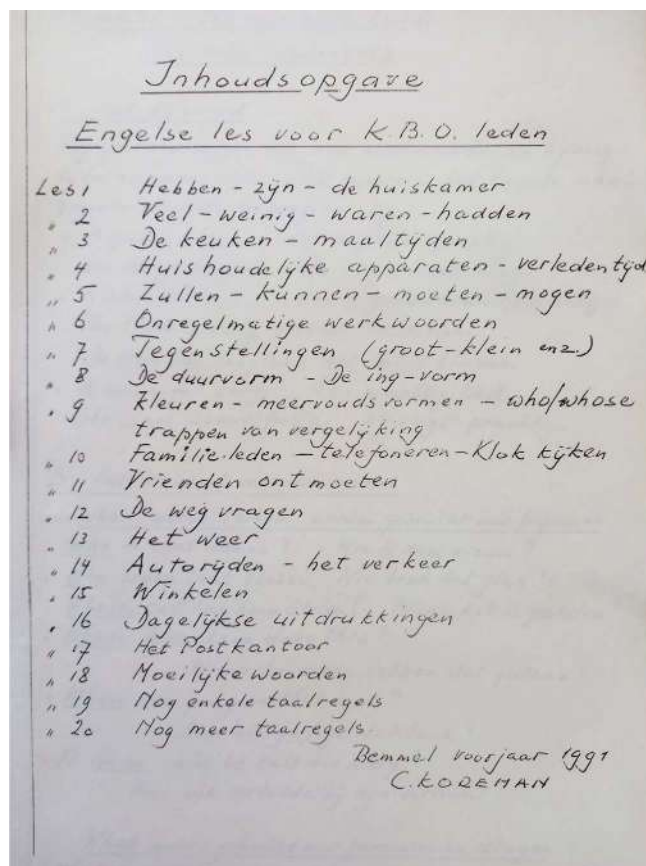 Inhoudsopgave
Engelse les voor K.B.O. leden
Les 1 Hebben - zijn - de huiskamer
" 2 Veel - weinig - waren - hadden
" 3 De keuken - maaltijden
" 4 Huishoudelijke apparaten - verleden tijd
" 5 Zullen - kunnen - moeten - mogen
" 6 Onregelmatige werkwoorden
" 7 Tegenstellingen (groot-klein enz.)
" 8 De duurvorm - De ing-vorm
" 9 Kleuren - meervoudsvormen - who/whose
trappen van vergelijking
" 10 Familieleden - telefoneren - Klok kijken
" 11 Vrienden ontmoeten
" 12 De weg vragen
" 13 Het weer
" 14 Autorijden - het verkeer
" 15 Winkelen
" 16 Dagelijkse uitdrukkingen
" 17 Het Postkantoor
" 18 Moeilijke woorden
" 19 Nog enkele taalregels
" 20 Nog meer taalregels
Bemmel voorjaar 1991
C. KOREMAN